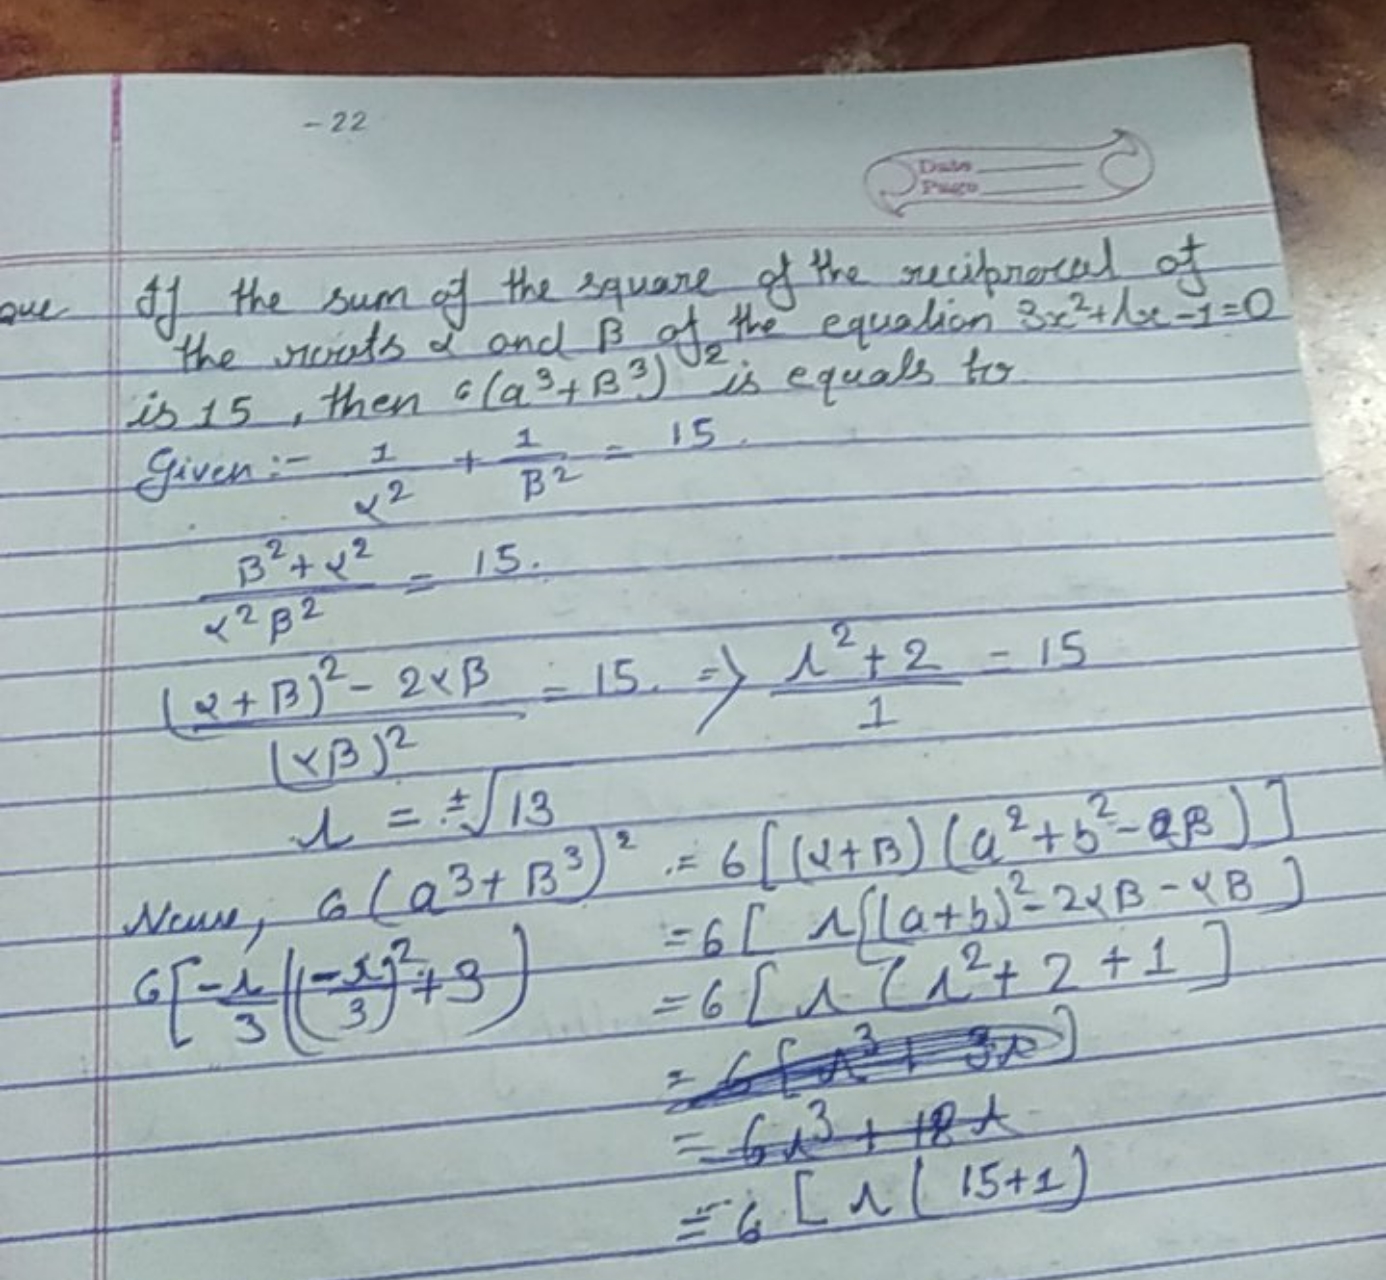 -22
Date
Page
que If the sum of the square of the reciprocal of
the roots α and β of the equation 3x²+λx-1=0
is 15, then 6(a³+β³)² is equals to
Given:- 1/α² + 1/β² = 15.
(β²+α²)/(α²β²) = 15.
((α+β)²-2αβ)/(αβ)² = 15. => (λ²+2)/1 = 15
λ = ±√13
Now, 6(a³+β³)² = 6[(α+β)(a²+b²-αβ)]
= 6[λ[(a+b)²-2αβ-αβ]
6[-λ/3((-λ/3)²+3)
= 6[λ(λ²+2+1]
= 6[λ³+3λ]
= 6λ³+18λ
= 6[λ(15+1)